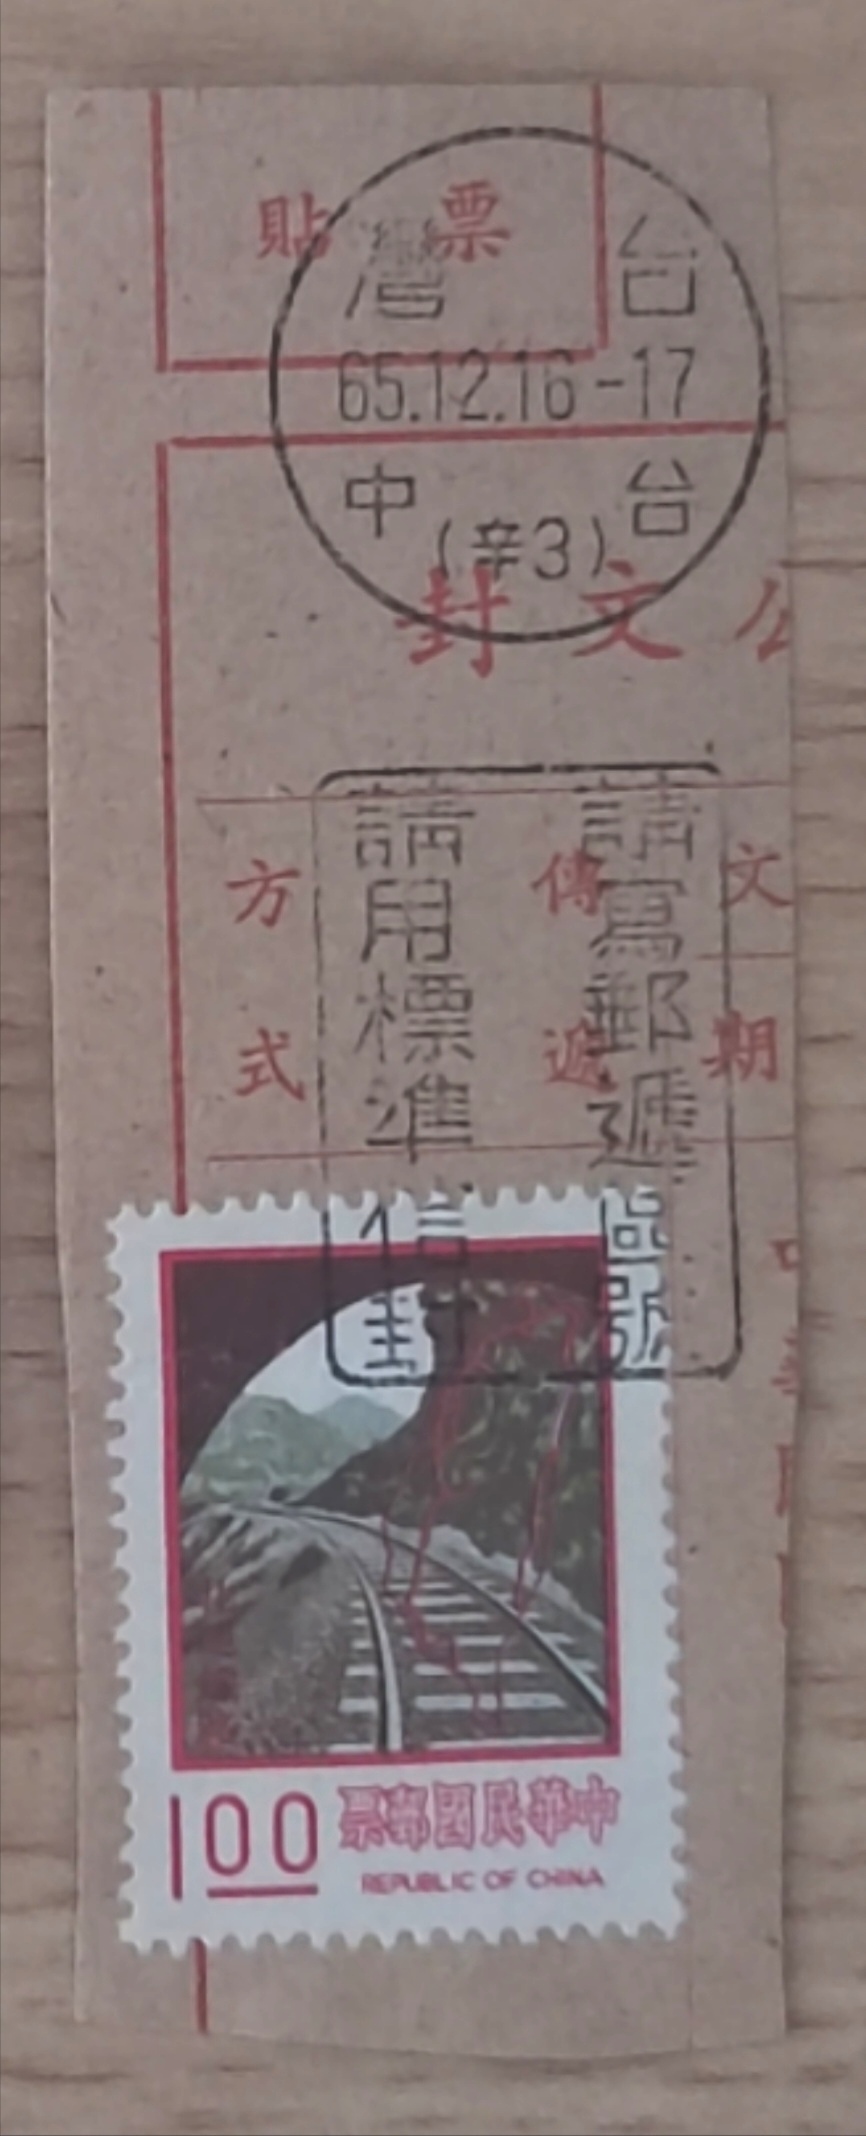 票貼
台灣
65.12.16-17
台中
(辛3)
公文封
請寫郵遞區號
請用標準信封
文
期
傳遞
方式
1.00
中華民國郵票
REPUBLIC OF CHINA